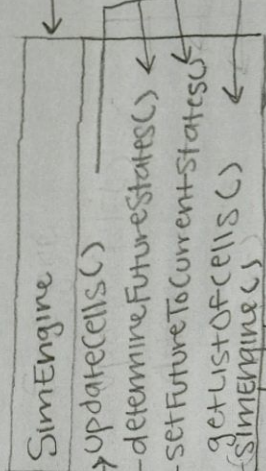 SimEngine
updateCells()
-determineFutureStates()
setFutureToCurrentStates()
getListOfCells()
SimEngine()